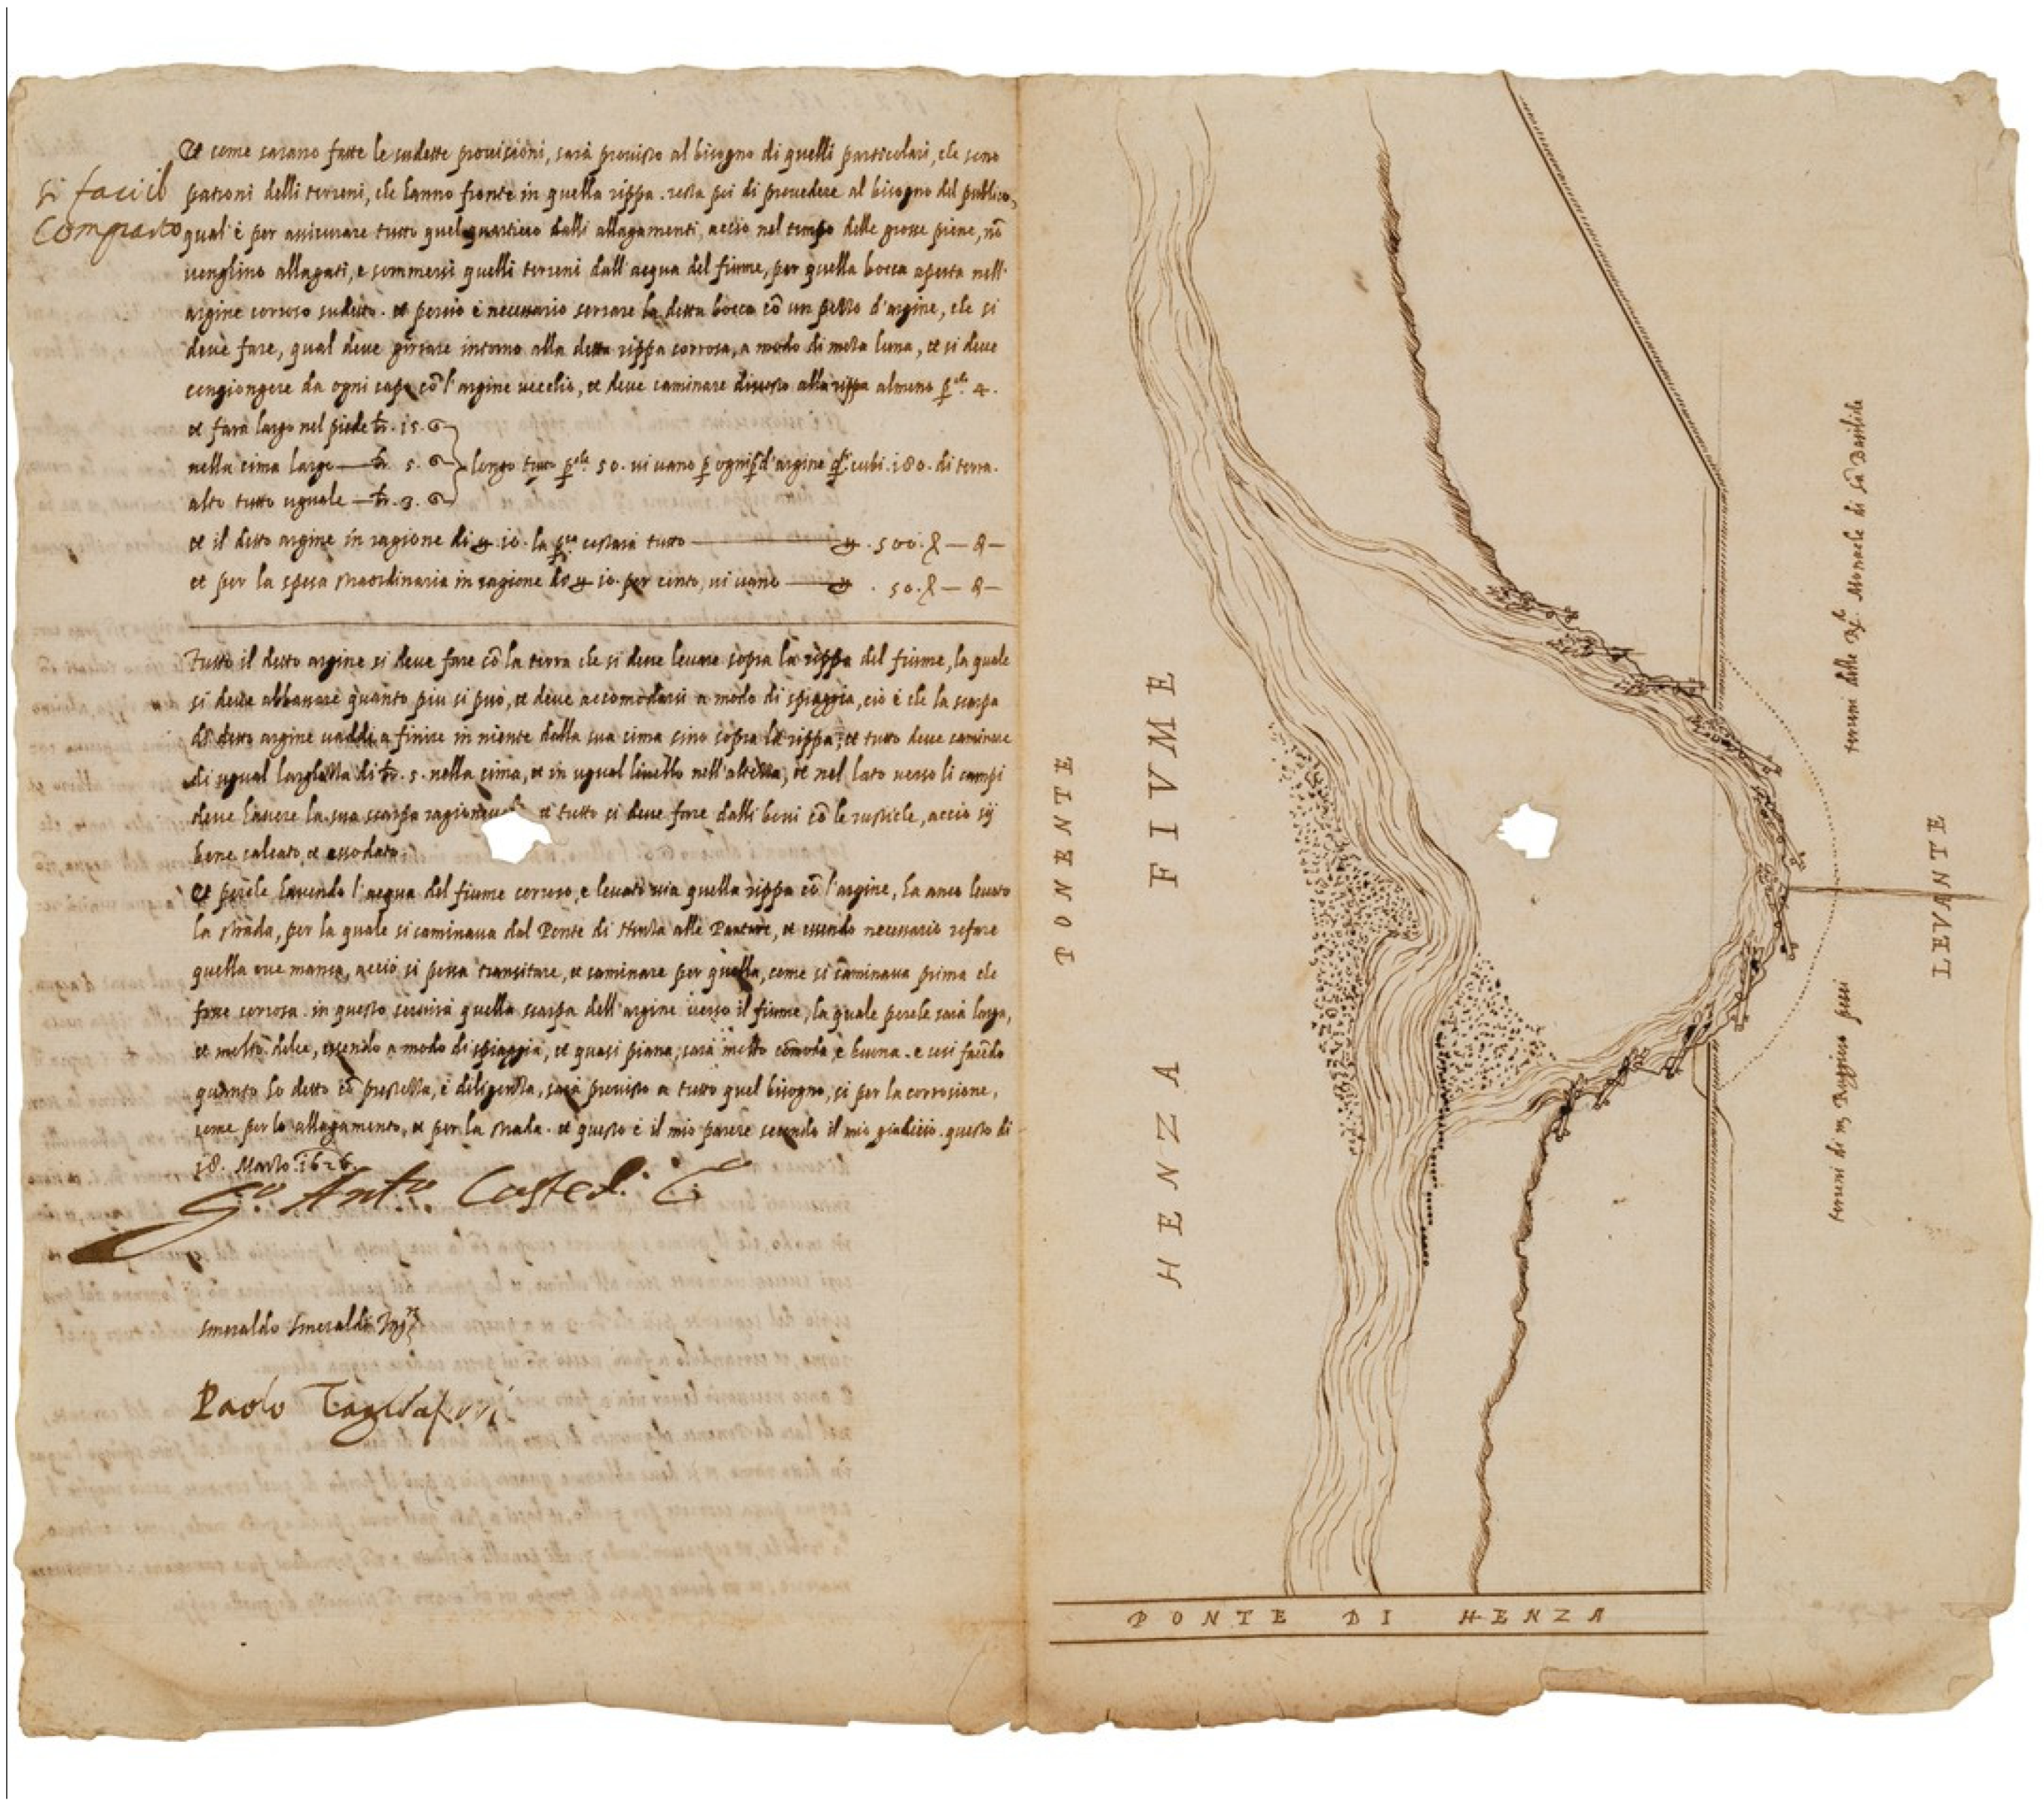 Et come sarano fatte le sudette provisioni, sarà provisto al bisogno di quelli particolari, che sono
si facii il
Comparto
patroni delli terreni, che hanno fronte in quella rippa. resta poi di provedere al bisogno del publico,
qual è per assicurare tutto quel quartiero dalli allagamenti, acciò nel tempo delle grosse piene, nõ
venghino allagati, e sommersi quelli terreni dall'acqua del fiume, per quella bocca aperta nell'
argine corroso sudetto. et perciò è necessario serrare la detta bocca cõ un pezzo d'argine, che si
deve fare, qual deve girare intorno alla detta rippa corrosa, a modo di meza luna, et si deve
congiongere da ogni capo cõ l'argine vecchio, et deve caminare discosto alla rippa almeno p.che 4.
et sarà largo nel piede br. 15. 6
nella cima largo — br. 5. 6
longo tutto p.che 50. vi vano p ogni p. d'argine q.ti cubi. 180. di terra.
alto tutto uguale — br. 3. 6
et il detto argine in ragione di 10. la p.ca costarà tutto — 500. — —
et per la spesa straordinaria in ragione di 10. per cento, vi vano — 50. — —
Tutto il detto argine si deve fare cõ la terra che si deve levare sopra la rippa del fiume, la quale
si deve abbassare quanto piu si può, et deve accomodarsi a modo di spiaggia, ciò è che la scarpa
di detto argine vaddi a finire in niente dalla sua cima sino sopra la rippa, et tutto deve caminare
di ugual larghezza di br. 5. nella cima, et in ugual livello nell'altezza, et nel lato verso li campi
deve havere la sua scarpa et tutto si deve fare dalli bovi cõ le rusticle, acciò sij
bene calcato, et assodato.
Et perche havendo l'acqua del fiume corroso, e levato via quella rippa cõ l'argine, ha anco levato
la strada, per la quale si caminava dal Ponte di Henza alle et essendo necessario refare
quella ove manca, acciò si possa transitare, et caminare per quella, come si caminava prima che
fosse corrosa. in questo servirà quella scarpa dell'argine verso il fiume, la quale perche sarà larga,
et molto dolce, essendo a modo di spiaggia, et quasi piana, sarà molto cõmoda e buona. e cosi facẽdo
quanto ho detto cõ prestezza, e diligenza, sarà provisto a tutto quel bisogno, si per la corrosione,
come per lo allagamento, et per la strada. et questo è il mio parere secondo il mio giudicio. questo di
18. Marzo. 1626.
Gio. Ant.o
Smeraldo Smeraldi
Paolo Tagliaferri
PONENTE
HENZA FIVME
LEVANTE
terreni delle Monache di Sã Basilide
terreni di m. Ruggiero
PONTE DI HENZA